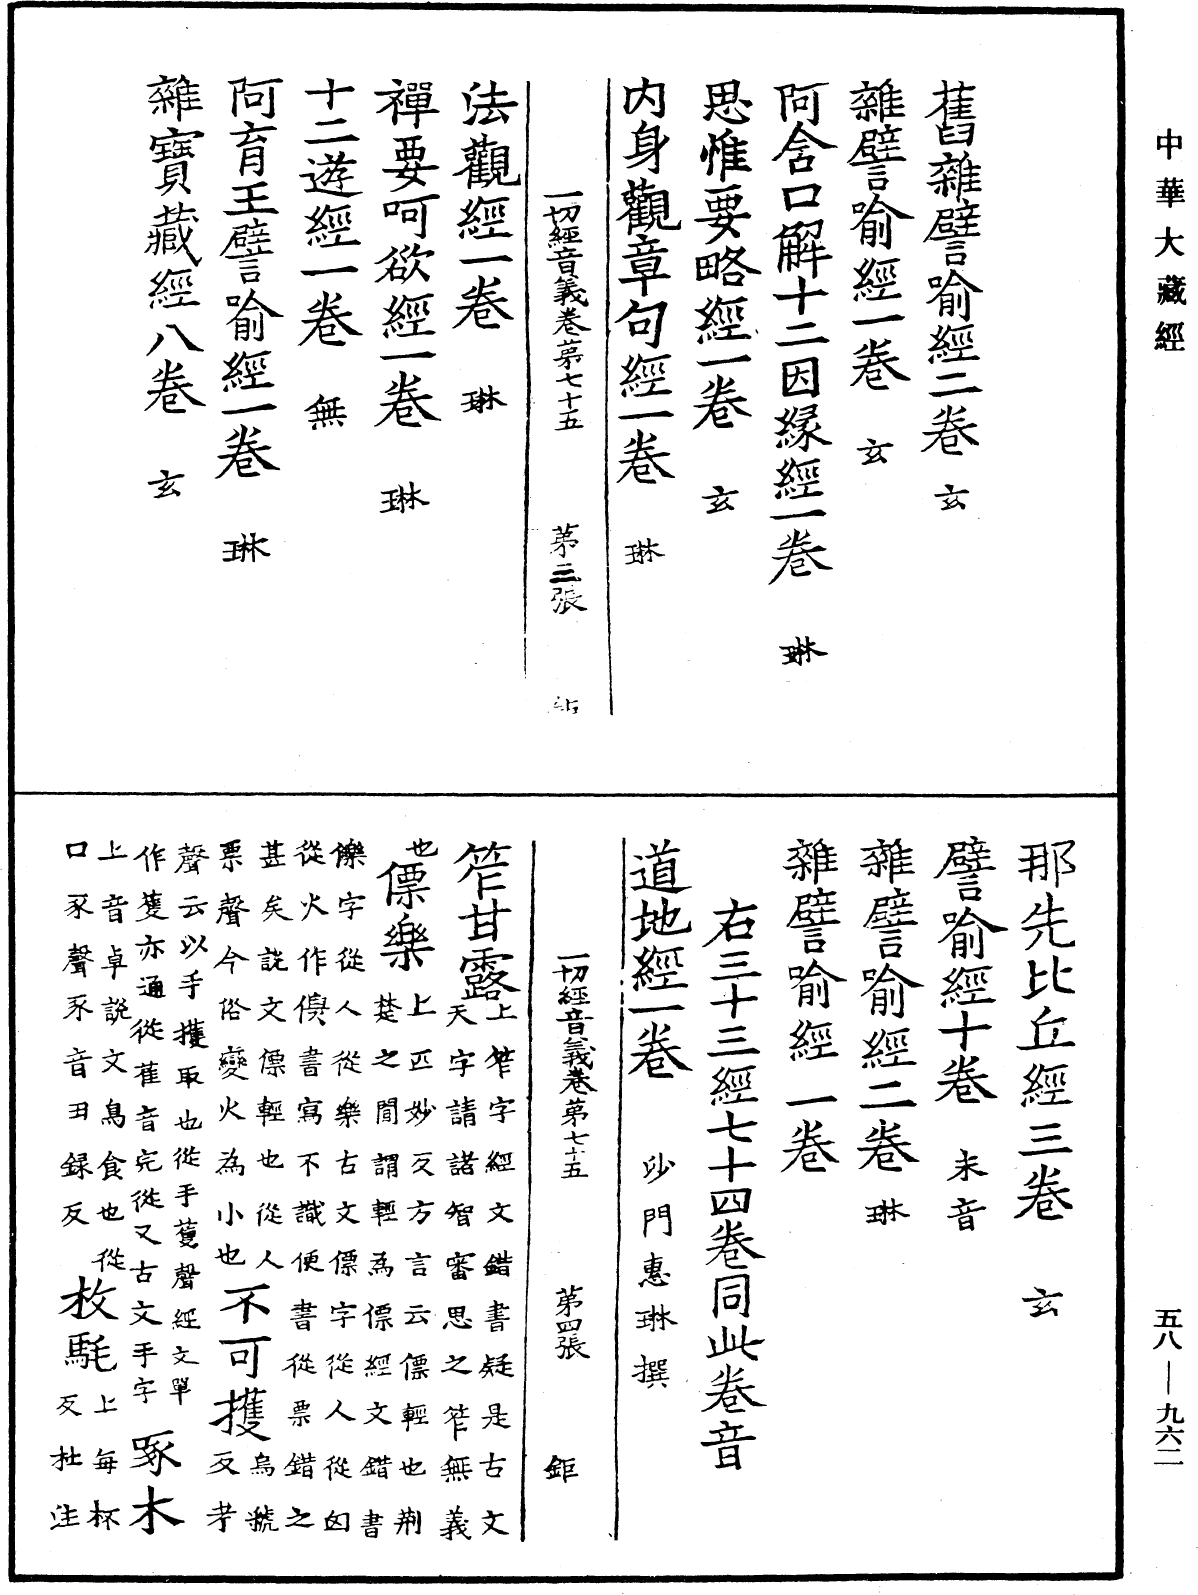 中華大藏經
舊雜譬喻經二卷 玄
雜譬喻經一卷 玄
阿含口解十二因緣經一卷 琳
思惟要略經一卷 玄
内身觀章句經一卷 琳
一切經音義卷第七十五 第三張
法觀經一卷 琳
禪要呵欲經一卷 琳
十二遊經一卷 無
阿育王譬喻經一卷 琳
雜寶藏經八卷 玄
那先比丘經三卷 玄
譬喻經十卷 未音
雜譬喻經二卷 琳
雜譬喻經一卷
右三十三經七十四卷同此卷音
道地經一卷 沙門惠琳撰
一切經音義卷第七十五 第四張 鉅
笮甘露 上笮字經文錯書疑是古文
天字請諸智審思之笮無義
也 僄樂 上匹妙反方言云僄輕也荆
楚之間謂輕為僄經文錯書
㒧字從人從樂古文僄字從人從囟
從火作㒓書寫不識便書從票錯之
甚矣說文僄輕也從人
票聲今俗變火為小也 不可擭 烏虢
反考
聲云以手擭取也從手蒦聲經文單
作蒦亦通從萑音完從又古文手字 啄木
上音卓說文鳥食也從
口豕聲豕音丑録反 枚毦 上每杯
反杜注
五八—九六二